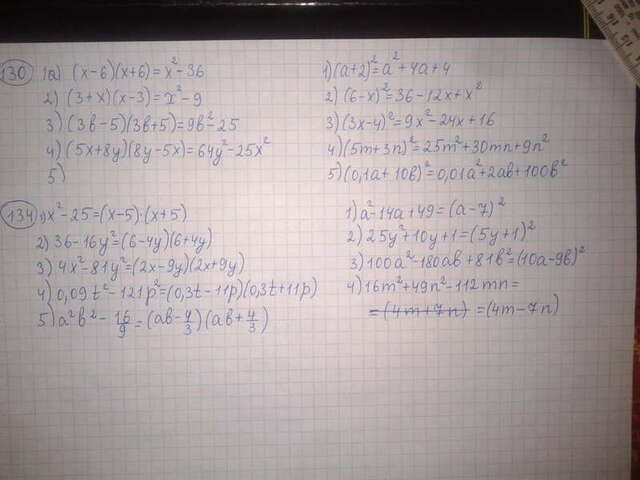 130 1a) (x-6)(x+6)=x²-36
2) (3+x)(x-3)=x²-9
3) (3в-5)(3в+5)=9в²-25
4) (5x+8y)(8y-5x)=64y²-25x²
5)
1) (a+2)²=a²+4a+4
2) (6-x)²=36-12x+x²
3) (3x-4)²=9x²-24x+16
4) (5m+3n)²=25m²+30mn+9n²
5) (0,1a+10в)²=0,01a²+2aв+100в²
134 1) x²-25=(x-5)·(x+5)
2) 36-16y²=(6-4y)(6+4y)
3) 4x²-81y²=(2x-9y)(2x+9y)
4) 0,09t²-121p²=(0,3t-11p)(0,3t+11p)
5) a²в²-16/9=(aв-4/3)(aв+4/3)
1) a²-14a+49=(a-7)²
2) 25y²+10y+1=(5y+1)²
3) 100a²-180aв+81в²=(10a-9в)²
4) 16m²+49n²-112mn=
=(4m+7n) =(4m-7n)